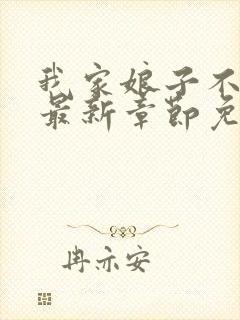 我家娘子不
最新章节免
冉亦安